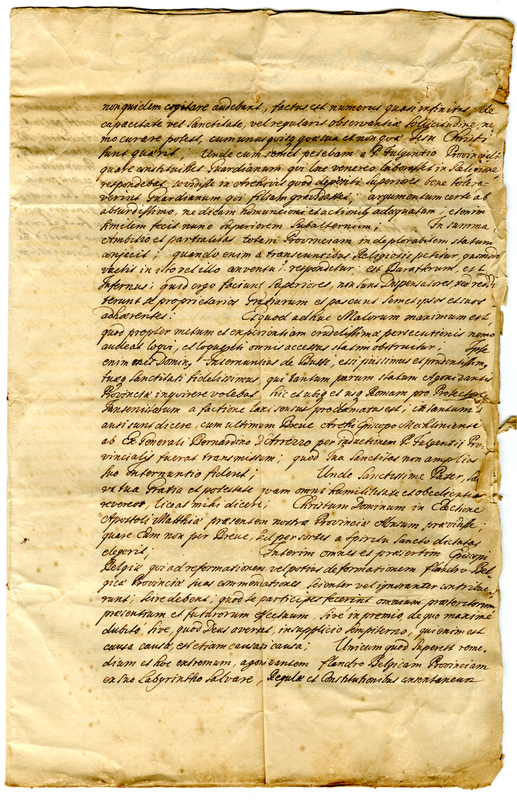 non quidem cogitare audebant, factus est numerus quasi infinitus, de
capacitate vel sanctitate, vel regularis observantiæ sollicitudine, ne-
mo curare potest, cum unusquisq quæ sua et non quæ Jesu Christi
sunt quærit. Unde cum semel petebam a P. Fulgentio Provinciali
quare instituisset Guardianum qui lue venerea laborasset in
respondebat, se vidisse in Archivis quod superiores bene tolera-
verint Guardianum qui filiam ; argumentum certe ab
absurdissimo, ne dicam et actionis ; et enim
similem fecit nunc superiorem subalternum; In summa
Ambitio et partialitas totam Provinciam in deplorabilem statum
conjecit; quando enim a transeuntibus Religiosis petitur, quomodo
vivitis in isto vel illo conventu? respondetur: est Barathrum, est
Infernus; quid ergo faciunt superiores, non sunt Dispensatores sed
de proprietariis et pascunt semetipsos et suos
adhærentes: Et quod adhuc Malorum maximum est
quod propter metum et experientiam crudelissimæ persecutionis nemo
audeat loqui, et loquenti omnis accessus statim obstruitur; Ipse
enim Domin, Internuntius de Bussi, etsi piissimus et prudentissim,
suæq sanctitati fidelissimus, quia tantum parum statum Agonizantis
Provinciæ inquirere volebat, hic et ubiq et usq Romam pro Protectore
Jansenistarum a factione proclamatus est; et tantum
ausi sunt dicere, cum ultimum Breve Archi Episcopo Mechliniensi
ab Ex Generali Bernardino d'Arezzo per inductionem P. Fulgentii Pro-
vincialis fuerat transmissum; quod sua sanctitas non amplius
suo Internuntio fideret; Unde Sanctissime Pater,
vestra gratia et potestate quam omni humilitate et obedientia
revereor, liceat mihi dicere; Christum Dominum in electione
Apostoli Matthiæ præsentem nostræ Provinciæ statum prævidisse;
quare eum non per Breve, sed per sortes a Spiritu Sancto dictatas
elegerit; Interim omnes et præsertim Episcopi
Belgii qui ad reformationem vel potius deformationem Flandro Bel-
gicæ Provinciæ suas commendationes scienter vel ignoranter contribue-
runt; scire debent, quod se participes fecerint omnium præteritorum
præsentium et futurorum effectuum, sive in præmio, de quo maxime
dubito, sive, quod Deus avertat, in supplicio sempiterno, qui enim est
causa causæ, est etiam causa causati; Unicum quod superest reme-
dium et hoc extremum, agonizantem Flandro Belgicam Provinciam
in suo Labyrintho salvare, Regulæ et Constitutionibus consentaneum